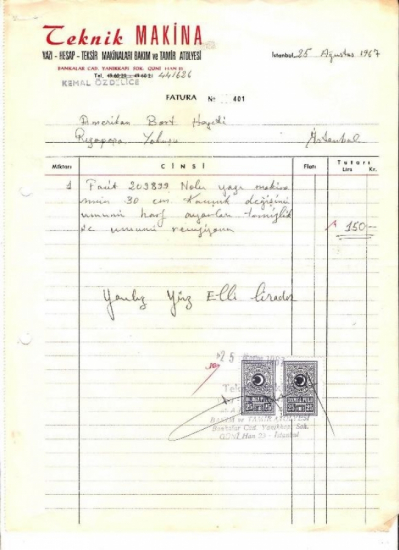 Teknik MAKİNA
YAZI - HESAP - TEKSİR MAKİNALARI BAKIM ve TAMİR ATOLYESİ
BANKALAR CAD. YANIKKAPI SOK. GÜNİ HAN 21
Tel. 441626
KEMAL ÖZDİLİCE
İstanbul, 25 Ağustos 1967
FATURA No 401
Amerikan Bort Heyeti
Rızapaşa Yokuşu
İstanbul
Miktarı CİNSİ Fiatı Tutarı
Lira Kr.
1 Facit 209899 Nolu yazı makina
sının 30 cm. Kauçuk değişimi
umumi harf ayarları temizlik
ve umumi revizyonu 150 —
Yanlız Yüz Elli liradır
25
BAKIM ve TAMİR ATOLYESİ
Bankalar Cad. Yanıkkapı Sok.
GÜNİ Han 21 - İstanbul